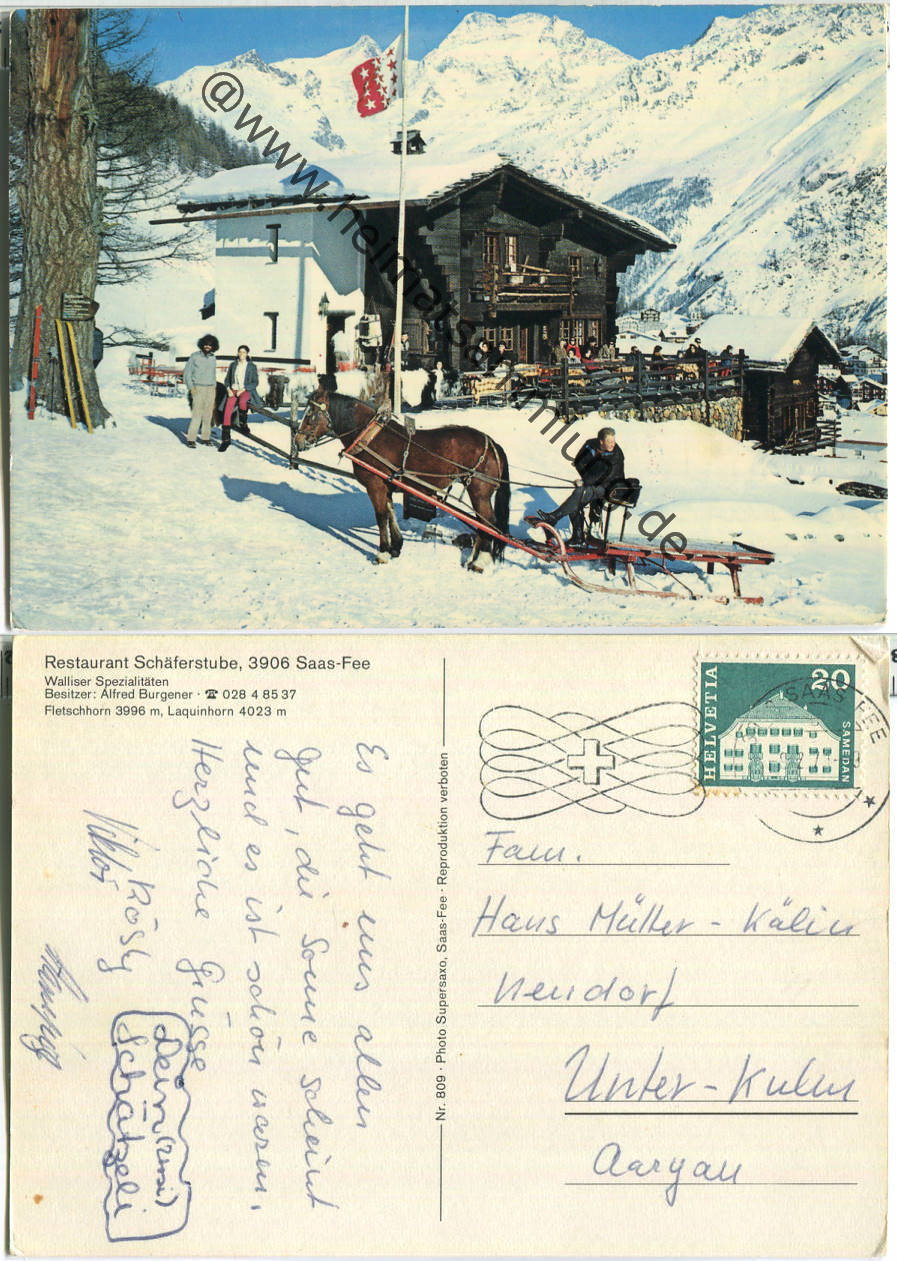 @www.heimatsammlung.de
Restaurant Schäferstube, 3906 Saas-Fee
Walliser Spezialitäten
Besitzer: Alfred Burgener · ☎ 028 4 85 37
Fletschhorn 3996 m, Laquinhorn 4023 m
Es geht uns allen
gut, die Sonne scheint
und es ist schön warm.
Herzliche Grüsse
Viktor
Rösly
Dein
Schatzeli
Nr. 809 · Photo Supersaxo, Saas-Fee · Reproduktion verboten
HELVETIA
20
SAMEDAN
SAAS-FEE
Fam.
Hans Müller-Kälin
Neudorf
Unter-Kulm
Aargau